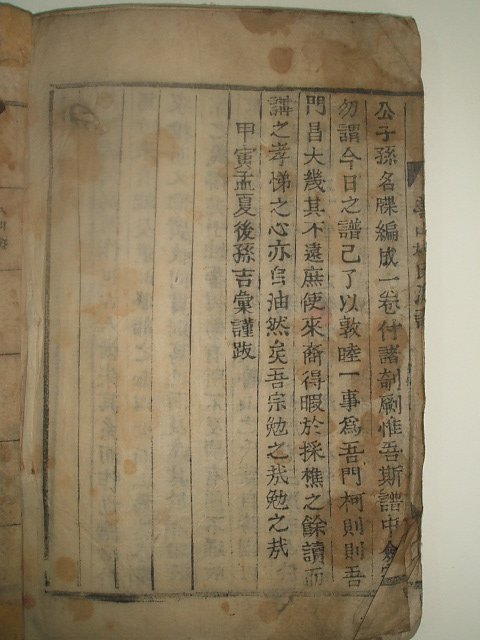 公子孫名牒編成一卷付諸剞劂惟吾斯譜中僉
勿謂今日之譜已了以敦睦一事爲吾門柯則則吾
門昌大幾其不遠庶使來裔得暇於採樵之餘讀而
講之孝悌之心亦自油然矣吾宗勉之哉勉之哉
甲寅孟夏後孫吉彙謹跋